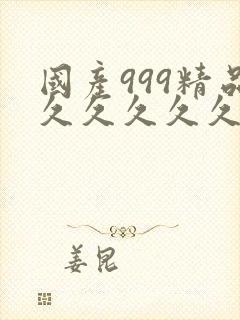 國産999精品
久久久久久
姜昆